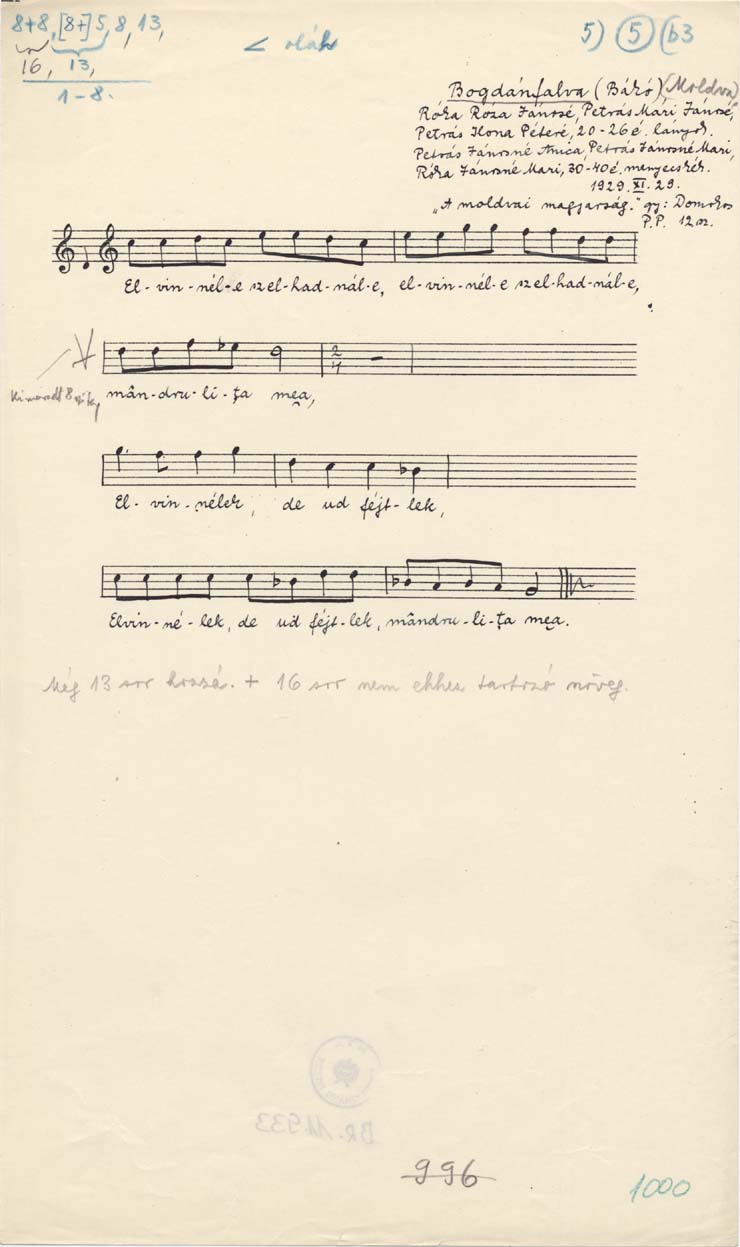 8+8, [8+]5, 8, 13,
16, 13,
1-8.
< oláh
5) 5 (b3
Bogdánfalva (Bákó) (Moldva)
Róka Róza Jánosé, Petrás Mári Jánosé,
Petrás Ilona Péteré, 20-26 é. lányok.
Petrás Jánosné Anica, Petrás Jánosné Mari,
Róka Jánosné Mari, 30-40 é. menyecskék.
1929. XI. 29.
"A moldvai magyarság." gy: Domokos
P.P. 12. sz.
El-vin-nél-e szel-had-nál-e, el-vin-nél-e szel-had-nál-e,
2/4
Kimaradt 8
mân-dru-li-ţa mea,
El-vin-nélek, de ud féjt-lek,
Elvin-né-lek, de ud féjt-lek, mândru-li-ţa mea.
Még 13 sor hozzá. + 16 sor nem ehhez tartozó szöveg.
BR. 11933
996
1000